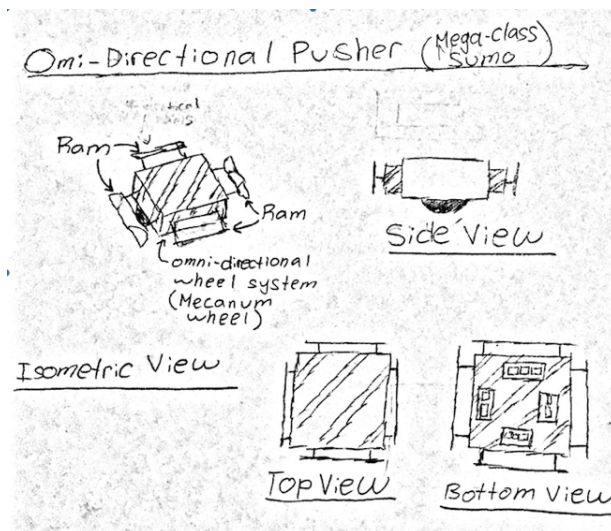 Omi-Directional Pusher (Mega-Class Sumo)
Ram
Ram
omni-directional
wheel system
(Mecanum
wheel)
Side View
Isometric View
Top View
Bottom View